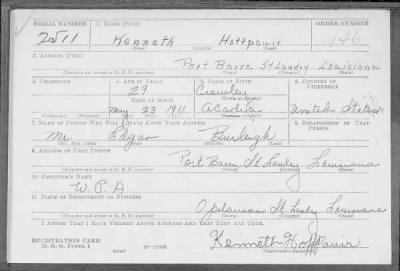 SERIAL NUMBER 1. NAME (Print) ORDER NUMBER
2511 Kenneth Hoffpauir 2946
(First) (Middle) (Last)
2. ADDRESS (Print)
Port Barre St Landry Louisiana
(Number and street or R. F. D. number) (Town) (County) (State)
3. TELEPHONE 4. AGE IN YEARS 5. PLACE OF BIRTH 6. COUNTRY OF CITIZENSHIP
29 Crowley
DATE OF BIRTH (Town or county)
May 23 1911 Acadia United States
(Exchange) (Number) (Mo.) (Day) (Yr.) (State or country)
7. NAME OF PERSON WHO WILL ALWAYS KNOW YOUR ADDRESS 8. RELATIONSHIP OF THAT PERSON
Mr. Edgar Burleigh
(Mr., Mrs., Miss) (First) (Middle) (Last)
9. ADDRESS OF THAT PERSON
Port Barre, St. Landry Louisiana
(Number and street or R. F. D. number) (Town) (County) (State)
10. EMPLOYER'S NAME
W.P.A
11. PLACE OF EMPLOYMENT OR BUSINESS
Opelousas St. Landry Louisiana
(Number and street or R. F. D. number) (Town) (County) (State)
I AFFIRM THAT I HAVE VERIFIED ABOVE ANSWERS AND THAT THEY ARE TRUE.
REGISTRATION CARD
D. S. S. Form 1 Kenneth Hoffpauir
(Registrant's signature)